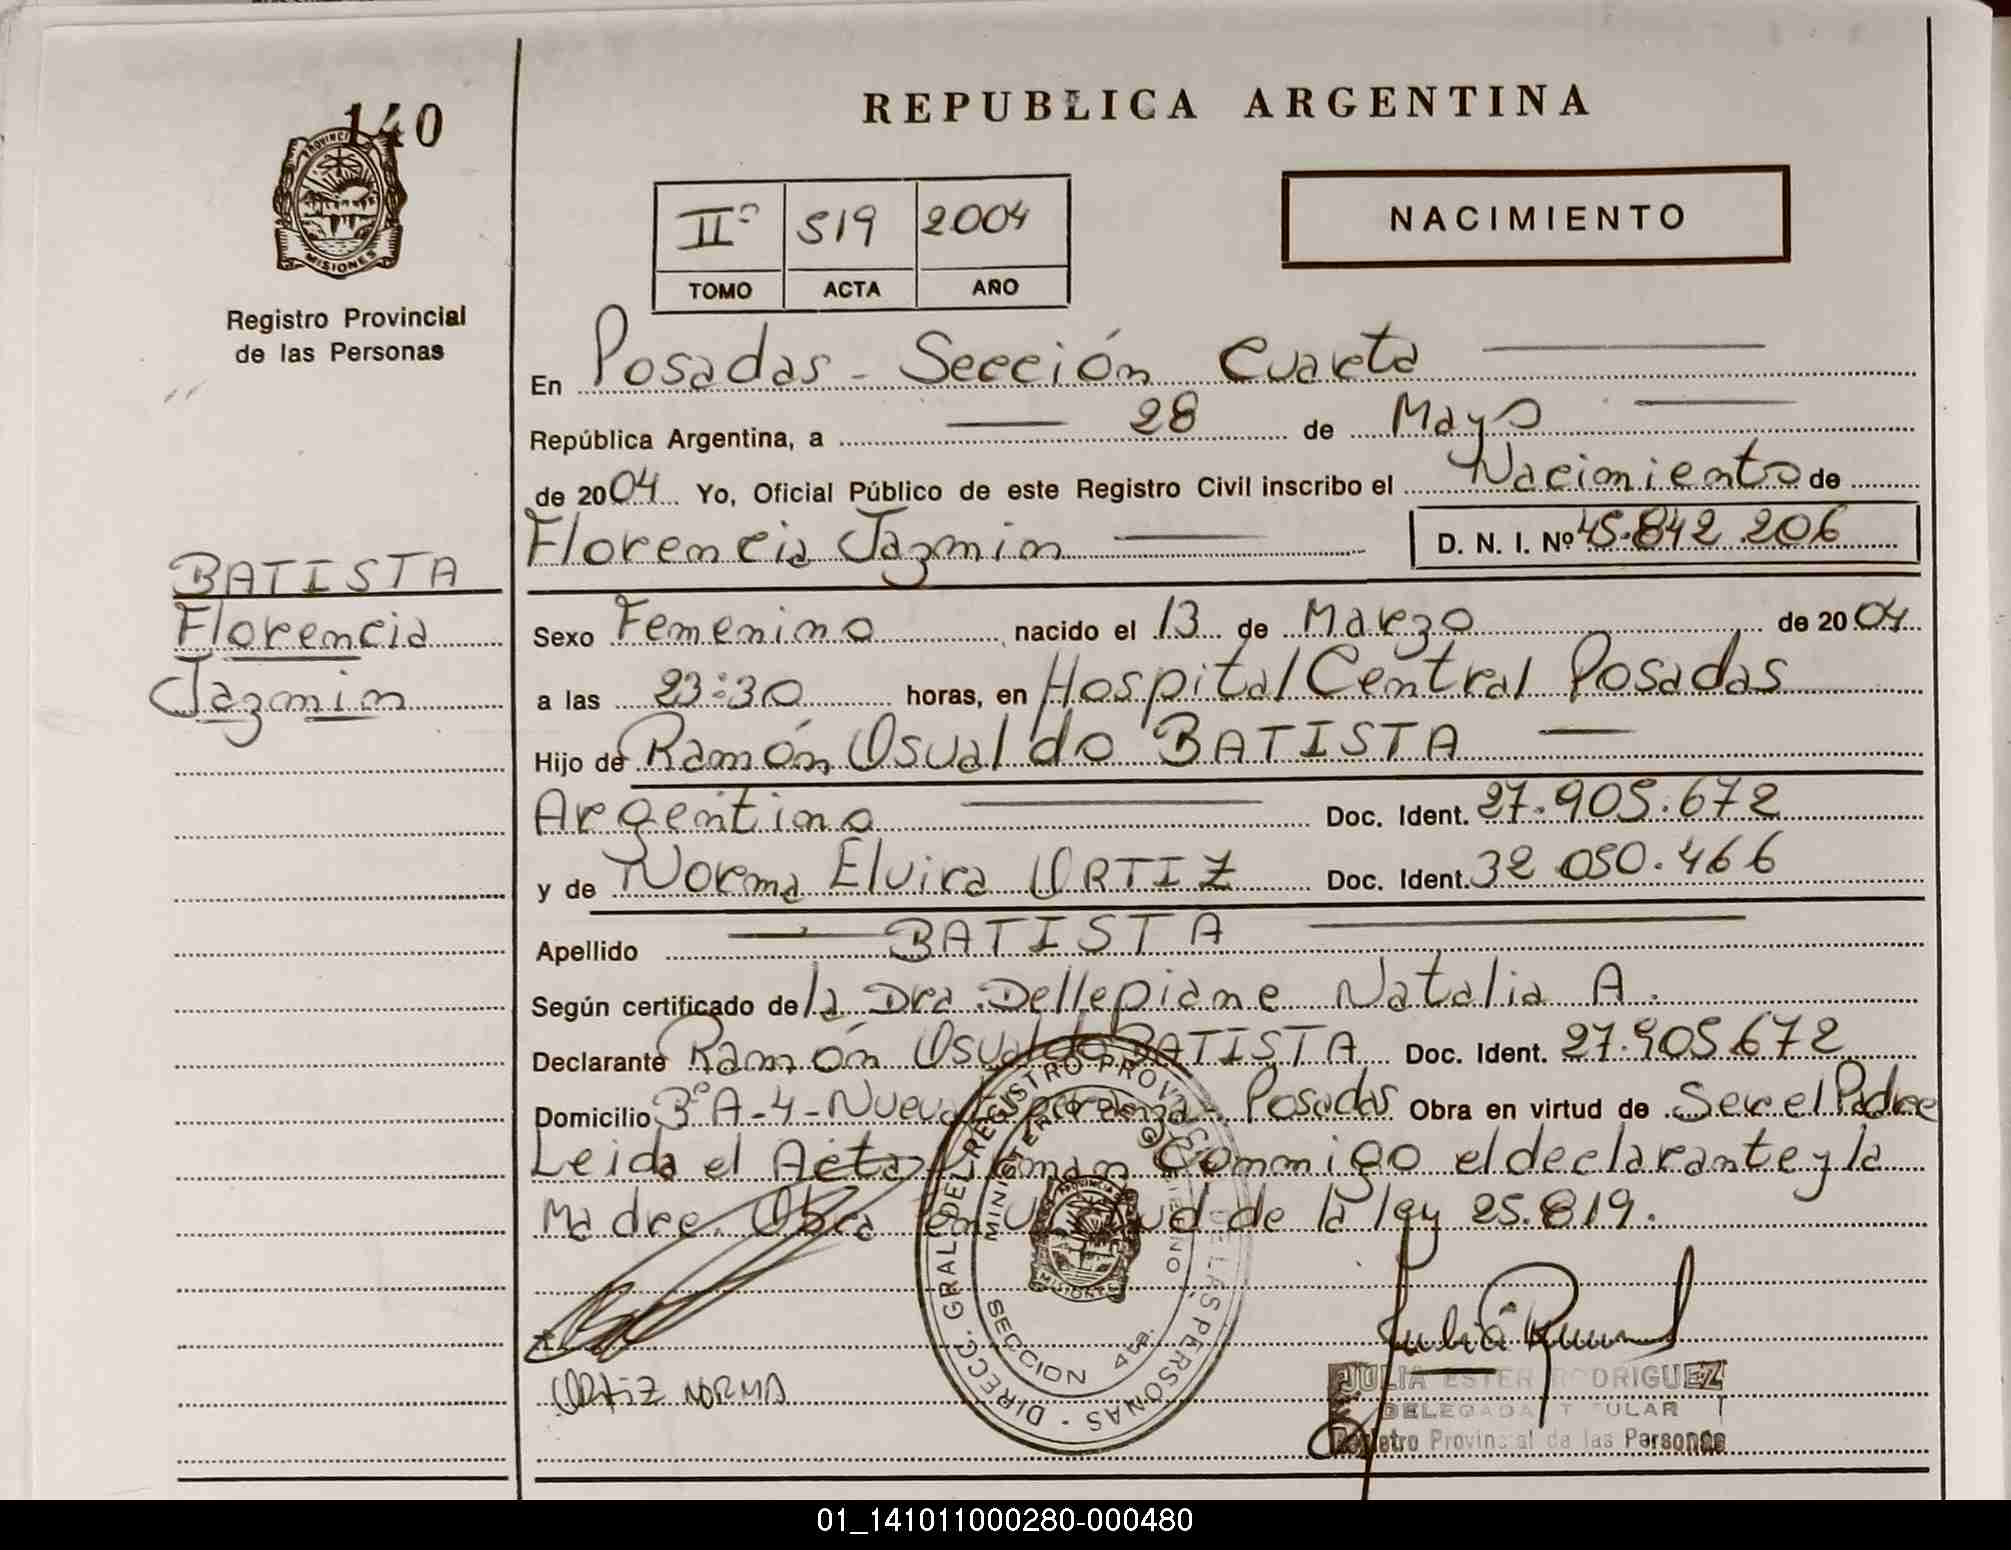 REPUBLICA ARGENTINA
140
PROVINCIA
MISIONES
Registro Provincial
de las Personas
IIº 519 2004
TOMO ACTA AÑO
NACIMIENTO
En Posadas - Sección Cuarta
República Argentina, a 28 de Mayo
de 2004 Yo, Oficial Público de este Registro Civil inscribo el Nacimiento de
Florencia Jazmin D. N. I. Nº 45.842 206
BATISTA
Florencia
Jazmin
Sexo Femenino nacido el 13 de Marzo de 2004
a las 23:30 horas, en Hospital Central Posadas
Hijo de Ramón Osualdo BATISTA
Argentino Doc. Ident. 27.905.672
y de Norma Elvira ORTIZ Doc. Ident. 32 050.466
Apellido BATISTA
Según certificado de la Dra. Dellepiane Natalia A.
Declarante Ramón Osualdo BATISTA Doc. Ident. 27.905.672
Domicilio 3º A-4-Nueva Esperanza - Posadas Obra en virtud de Ser el Padre
Leida el Acta Firman Conmigo el declarante y la
Madre. Obra en virtud de la ley 25.819.
DIRECC. GRAL. DEL REGISTRO PROV. DE LAS PERSONAS
MINISTERIO GOBIERNO
SECCION 4ta.
PROVINCIA
MISIONES
ORTIZ NORMA
JULIA ESTER RODRIGUEZ
DELEGADA TITULAR
Registro Provincial de las Personas
01_141011000280-000480